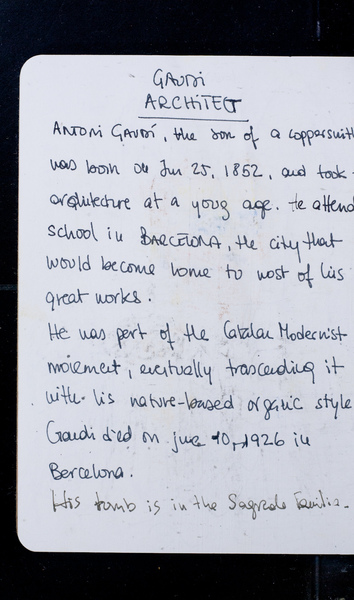 GAUDÍ
ARCHITECT
ANTONI GAUDÍ, the son of a coppersmith
was born on Jun 25, 1852, and took
arquitecture at a young age. He attend
school in BARCELONA, the city that
would become home to most of his
great works.
He was part of the Catalan Modernist
movement, eventually trascending it
with his nature-based organic style
Gaudi died on june 10, 1926 in
Barcelona.
His tomb is in the Sagrada Familia.